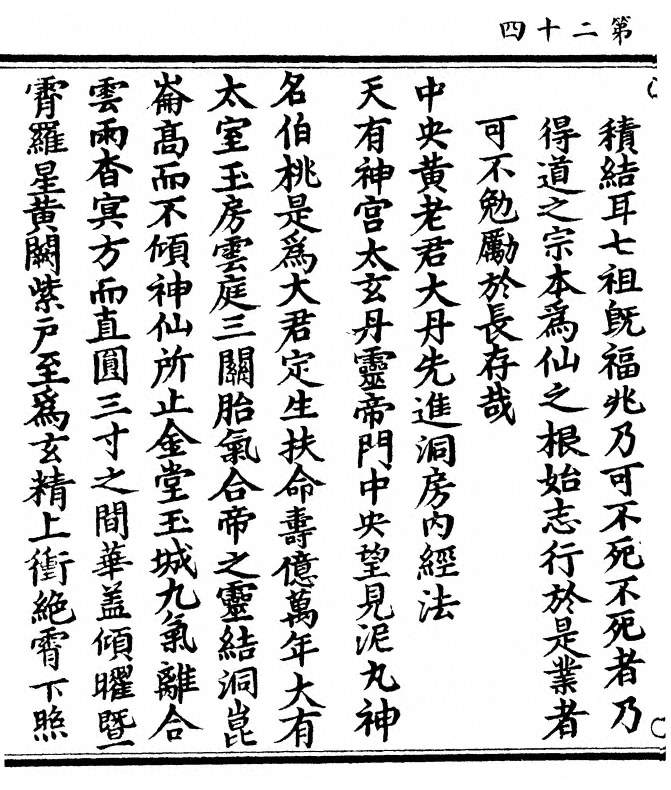 第二十四
積結耳七祖旣福兆乃可不死不死者乃
得道之宗本爲仙之根始志行於是業者
可不勉勵於長存哉
中央黄老君大丹先進洞房内經法
天有神宫太玄丹靈帝門中央望見泥丸神
名伯桃是爲大君定生扶命壽億萬年大有
太室玉房雲庭三關胎氣合帝之靈結洞崑
崙髙而不傾神仙所止金堂玉城九氣離合
雲雨杳冥方而直圓三寸之間華盖傾曜暨
霄羅星黄闕紫戸至爲玄精上衝絶霄下照